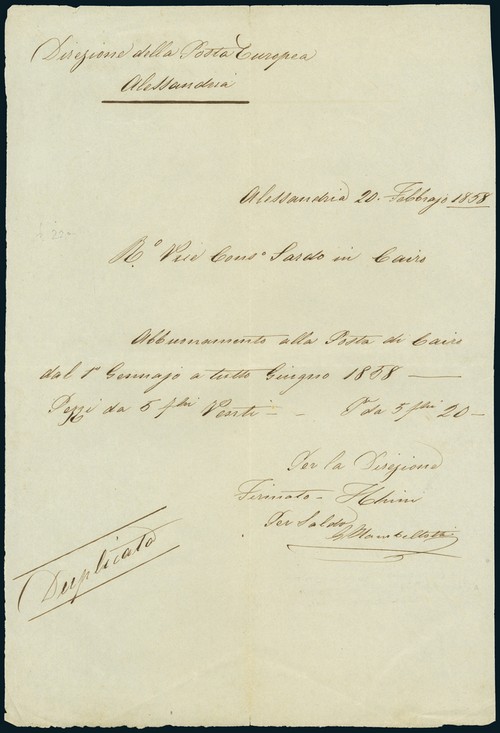 Direzione della Posta Europea
Alessandria
Alessandria 20. Febbrajo 1858
R.º Vice Cons.º Sardo in Cairo
Abbuonamento alla Posta di Cairo
dal 1º Gennajo a tutto Giugno 1858 —
Pezzi da 5 fchi Venti — - Pi da 5 fchi 20 —
Per la Direzione
Firmato -
Per Saldo
Duplicato